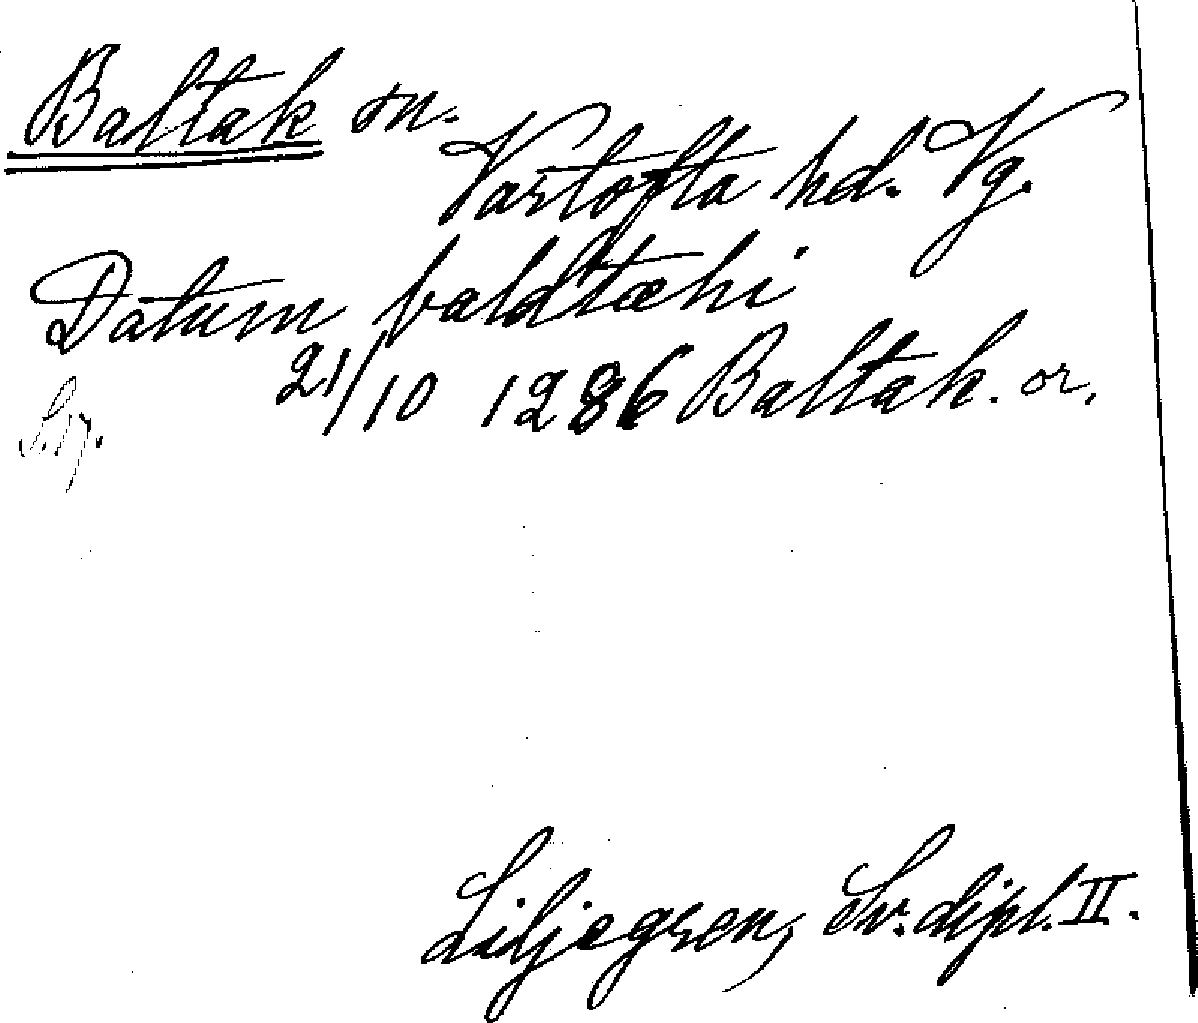 Baltak sn.
Vartofta hd. Vg.
Datum baldtæhi
21/10 1286 Baltak. or.
Liljegren, Sv. dipl. II.